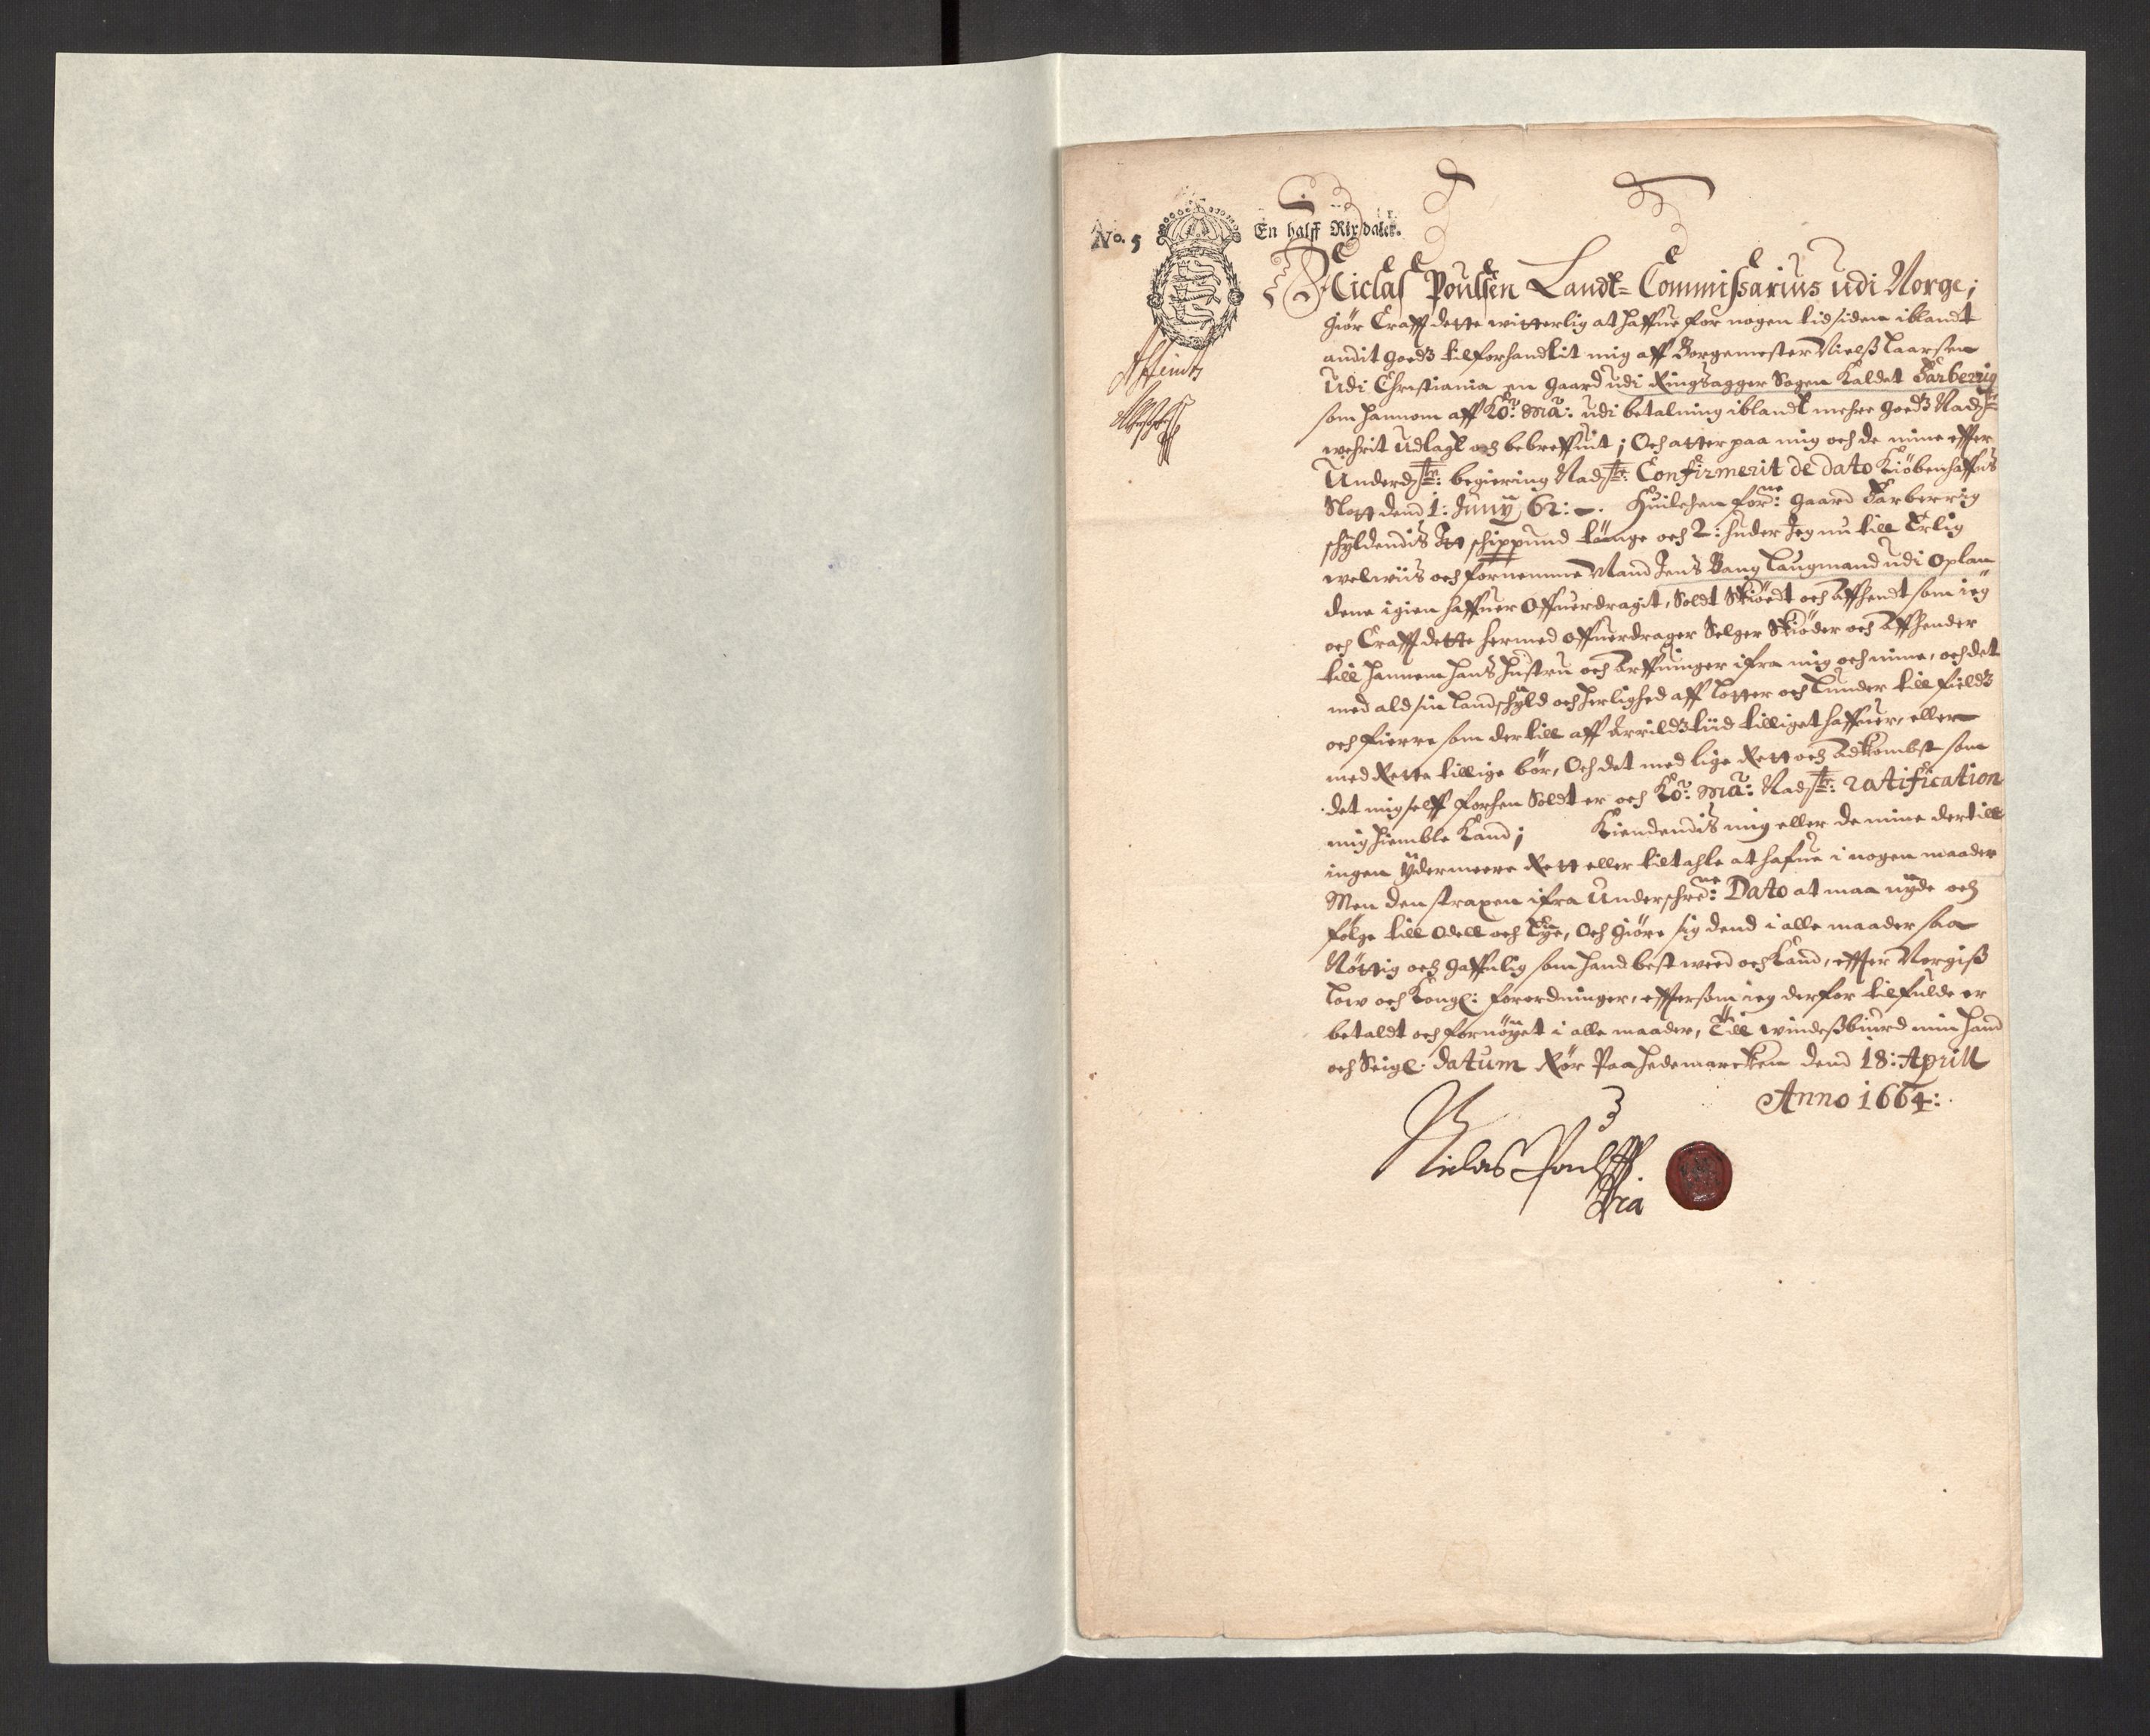 No. 5 En halff Rixdaler.
Niclas Poulsen Landt-Commissarius udi Norge;
giör Krafft dette witterlig at haffue for nogen tid siden iblandt
andit goedz tilforhandlit mig aff Borgemester Nielß Laarsen
Udi Christiania en gaard udi Ringsagger Sogen kaldet Farberrig
som hannom aff Ko: Ma: udi betalning iblandt mehre goedz Nadste
wehrit Udlagt och bebreffuit; Och atter paa mig och de mine effter
Underdste: begiering Nadste: Confirmerit de dato Kiöbenhaffns
Slott dend 1: Junij 62: Huilchen forne: gaard Farberrig
schyldendis Itt schippund tunge och 2: huder Jeg nu till Erlig
welwiis och fornemme Mand Jens Bang Laugmand udi Oplan
dene igien haffuer Offuerdragit, Soldt Skiödt och Affhendt som ieg
och Krafft dette hermed offuerdrager Selger Skiöder och Affhender
till hannem hans hustru och Arffuinger ifra mig och mine, och det
med ald sin landschyld och herlighed aff lotter och lunder till fieldz
och fierre som dertill aff Arrildztiid tilliget haffuer, eller
med Rette tillige bör, Och det med lige Rett och Adkombst som
det mig selff forhen Soldt er och Ko: Ma: Nadste: ratification
mig hiemble kand; Kiendendis mig eller de mine dertill
ingen Ydermeere Rett eller tiltahle at hafue i nogen maader
Men den straxen ifra Underschrne: Dato at maa nyde och
följe till Odell och Eye, Och giöre sig dend i alle maader saa
Nöttig och gaffnlig som hand best weed och kand, effter Norgiß
low och Kongl: forordninger, efftersom ieg derfor tilfulde er
betaldt och fornöyet i alle maader, Till windeßbiurd min hand
och Seigl. datum Rör Paa Hedemarcken dend 18: Aprill
Anno 1664:
Niclas Poulsen